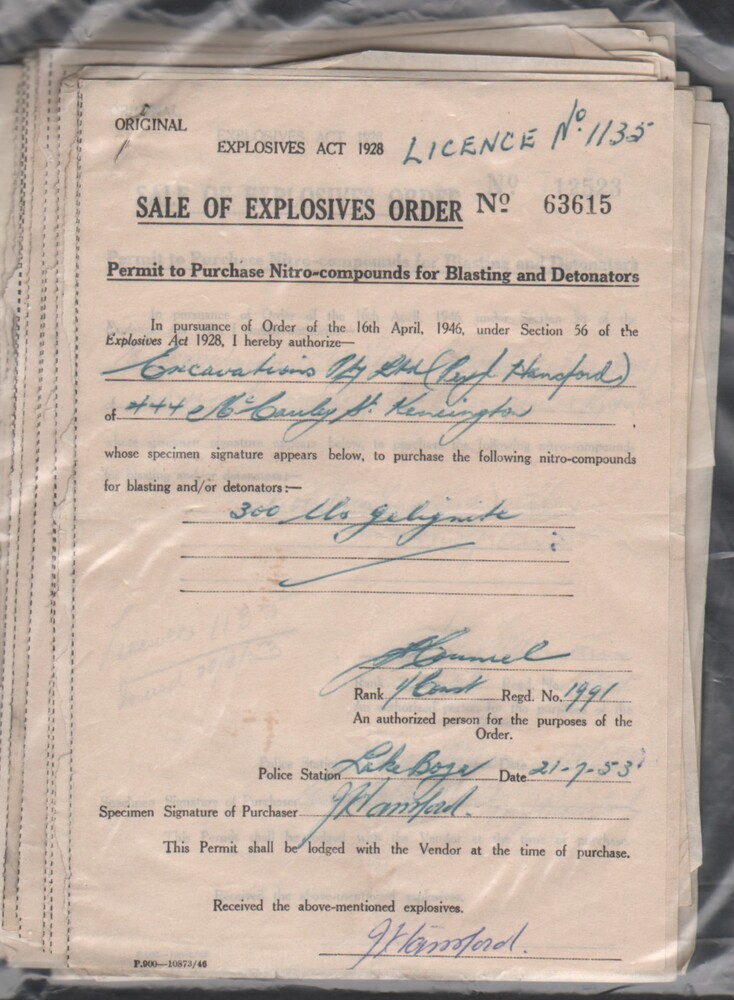 ORIGINAL
EXPLOSIVES ACT 1928 LICENCE No. 1135
SALE OF EXPLOSIVES ORDER No 63615
Permit to Purchase Nitro-compounds for Blasting and Detonators
In pursuance of Order of the 16th April, 1946, under Section 56 of the
Explosives Act 1928, I hereby authorize—
Excavations P/y Ltd (Per J. Hansford)
of 444 McCauley St. Kensington
whose specimen signature appears below, to purchase the following nitro-compounds
for blasting and/or detonators:—
300 lbs gelignite
Rank 1/Const Regd. No. 1991
An authorized person for the purposes of the
Order.
Police Station Lake Boga Date 21-7-53
Specimen Signature of Purchaser J Hansford.
This Permit shall be lodged with the Vendor at the time of purchase.
Received the above-mentioned explosives.
J Hansford.
F.900—10873/46